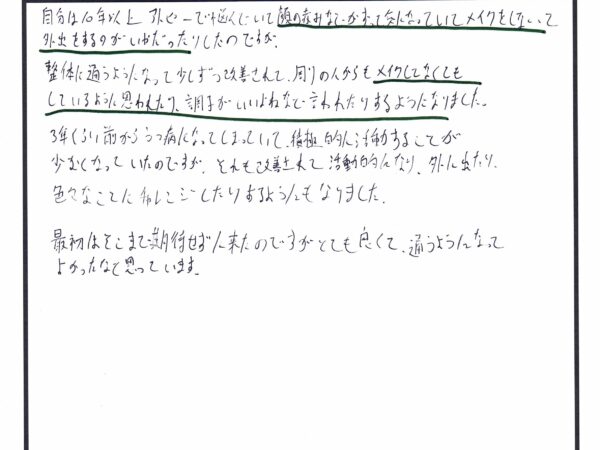 自分は10年以上アトピーで悩んでいて顔の赤みなどがずっと気になっていてメイクをしないで
外出をするのがいやだったりしたのですが、
整体に通うようになって少しずつ改善されて、周りの人からもメイクしてなくても
しているように思われたり、調子がいいよねなど言われたりするようになりました。
3年くらい前からうつ病になってしまっていて、積極的に活動することが
少なくなっていたのですが、それも改善されて活動的になり、外に出たり、
色々なことにチャレンジしたりするようにもなりました。
最初はそこまで期待せずに来たのですがとても良くて、通うようになって
よかったなと思っています。